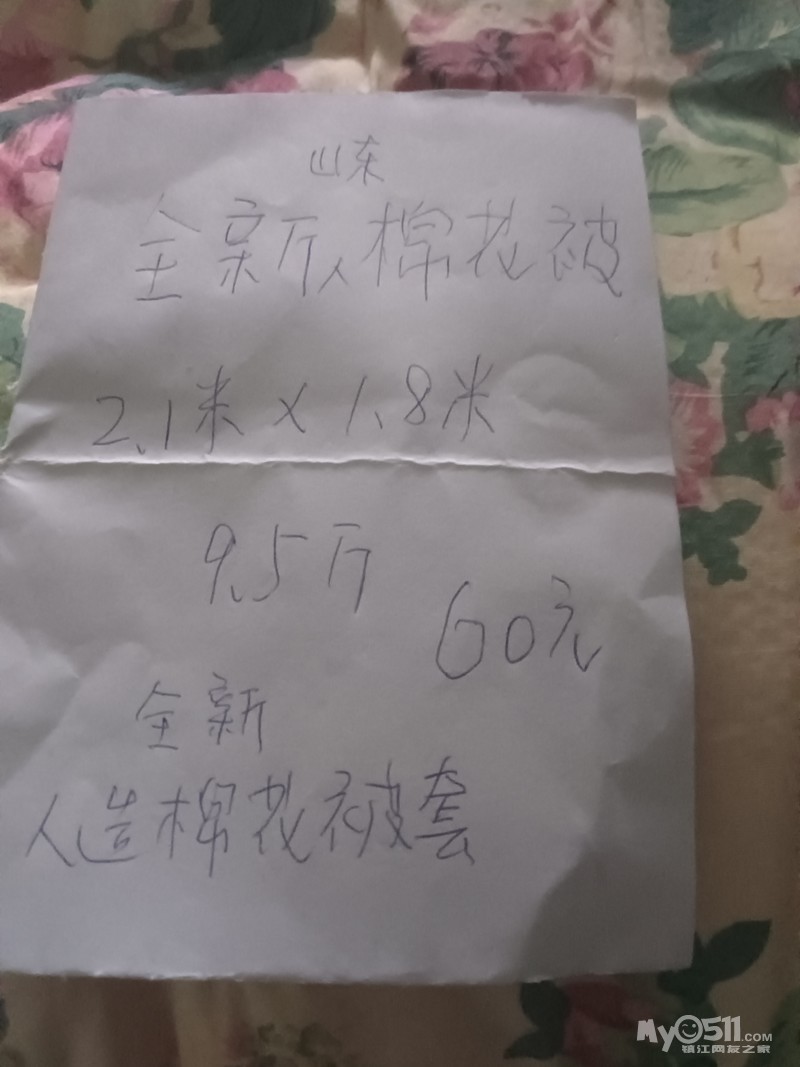 山东
全新棉花被
2.1米×1.8米
9.5斤
60元
全新
人造棉花被套
My0511.com
镇江网友之家